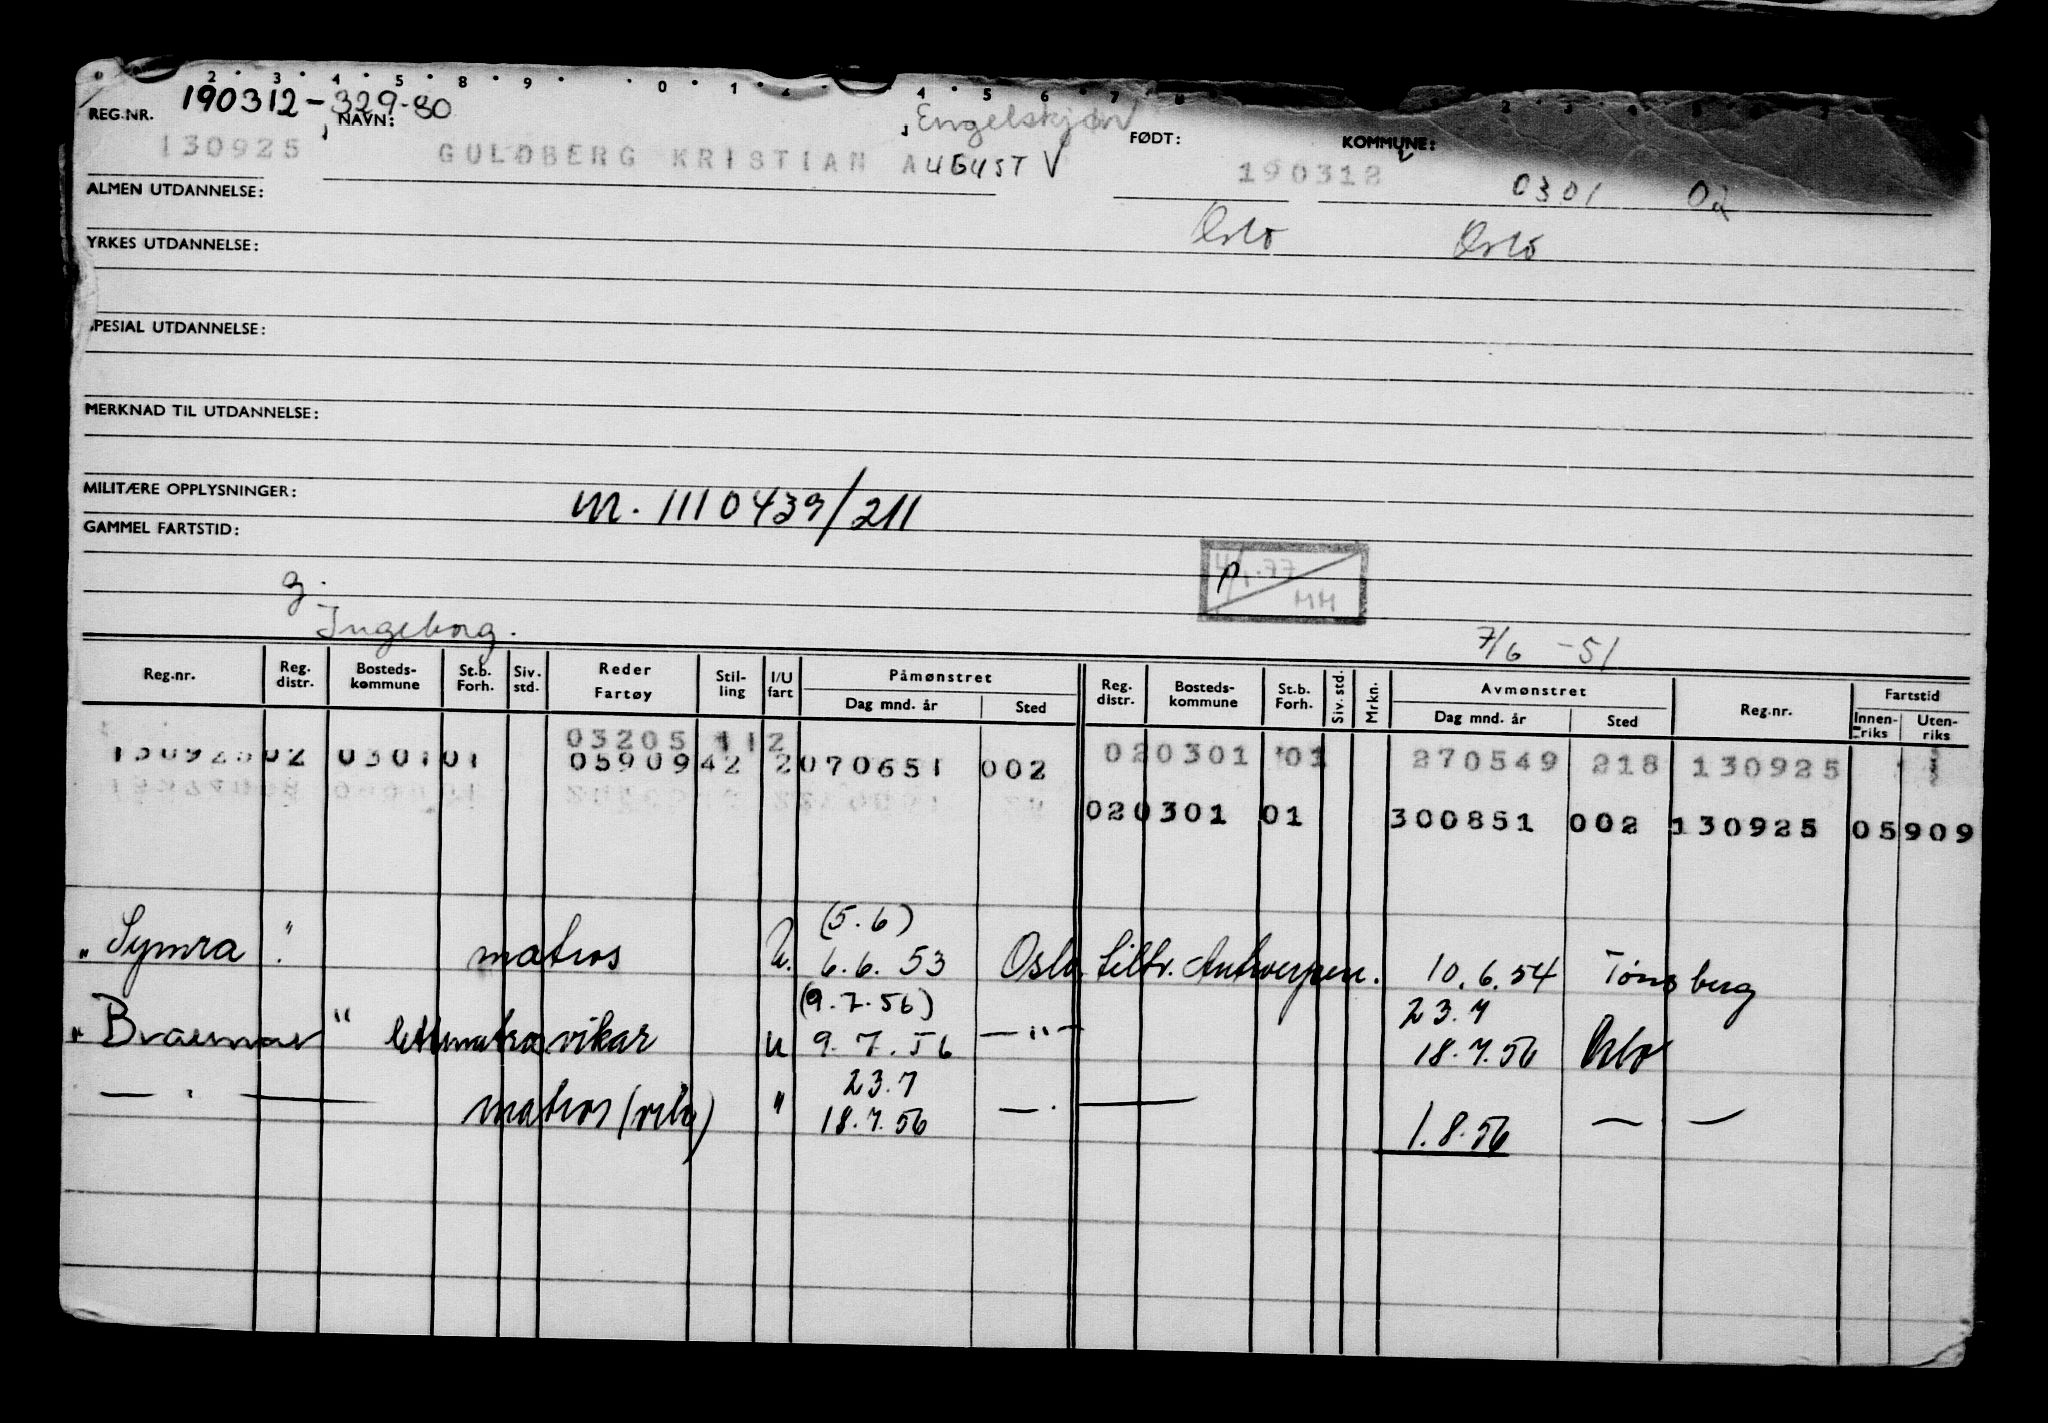 2 3 4 5 8 9 0 1 2 4 5 6 7 8 2 3 4 5
REG.NR. 190312-329-80 NAVN: , Engelskjøn FØDT: KOMMUNE:
130925 GULDBERG KRISTIAN AUGUST V 190312 0301 02
ALMEN UTDANNELSE:
Oslo Oslo
YRKES UTDANNELSE:
SPESIAL UTDANNELSE:
MERKNAD TIL UTDANNELSE:
MILITÆRE OPPLYSNINGER: M. 1110439/211
GAMMEL FARTSTID:
77
MM
g.
Ingeborg.
7/6 -51
Reg.nr. Reg. distr. Bosteds-kommune St.b. Forh. Siv. std. Reder Fartøy Stil-ling I/U fart Påmønstret Dag mnd. år Sted Reg. distr. Bosteds-kommune St.b. Forh. Siv. std. Mrkn. Avmønstret Dag mnd. år Sted Reg.nr. Fartstid Innen-riks Uten-riks
03205 112 020301 01 270549 218 130925
130925 02 0301 01 05909 42 2 070651 002
020301 01 300851 002 130925 05909
(5.6)
"Symra" matros U. 6.6.53 Oslo, tiltr. Antwerpen. 10.6.54 Tønsberg
(9.7.56) 23.7
"Braemar" lettmatros vikar U 9.7.56 —"— 18.7.56 Oslo
23.7
— " — matros (vik) " 18.7.56 — " — 1.8.56 — —